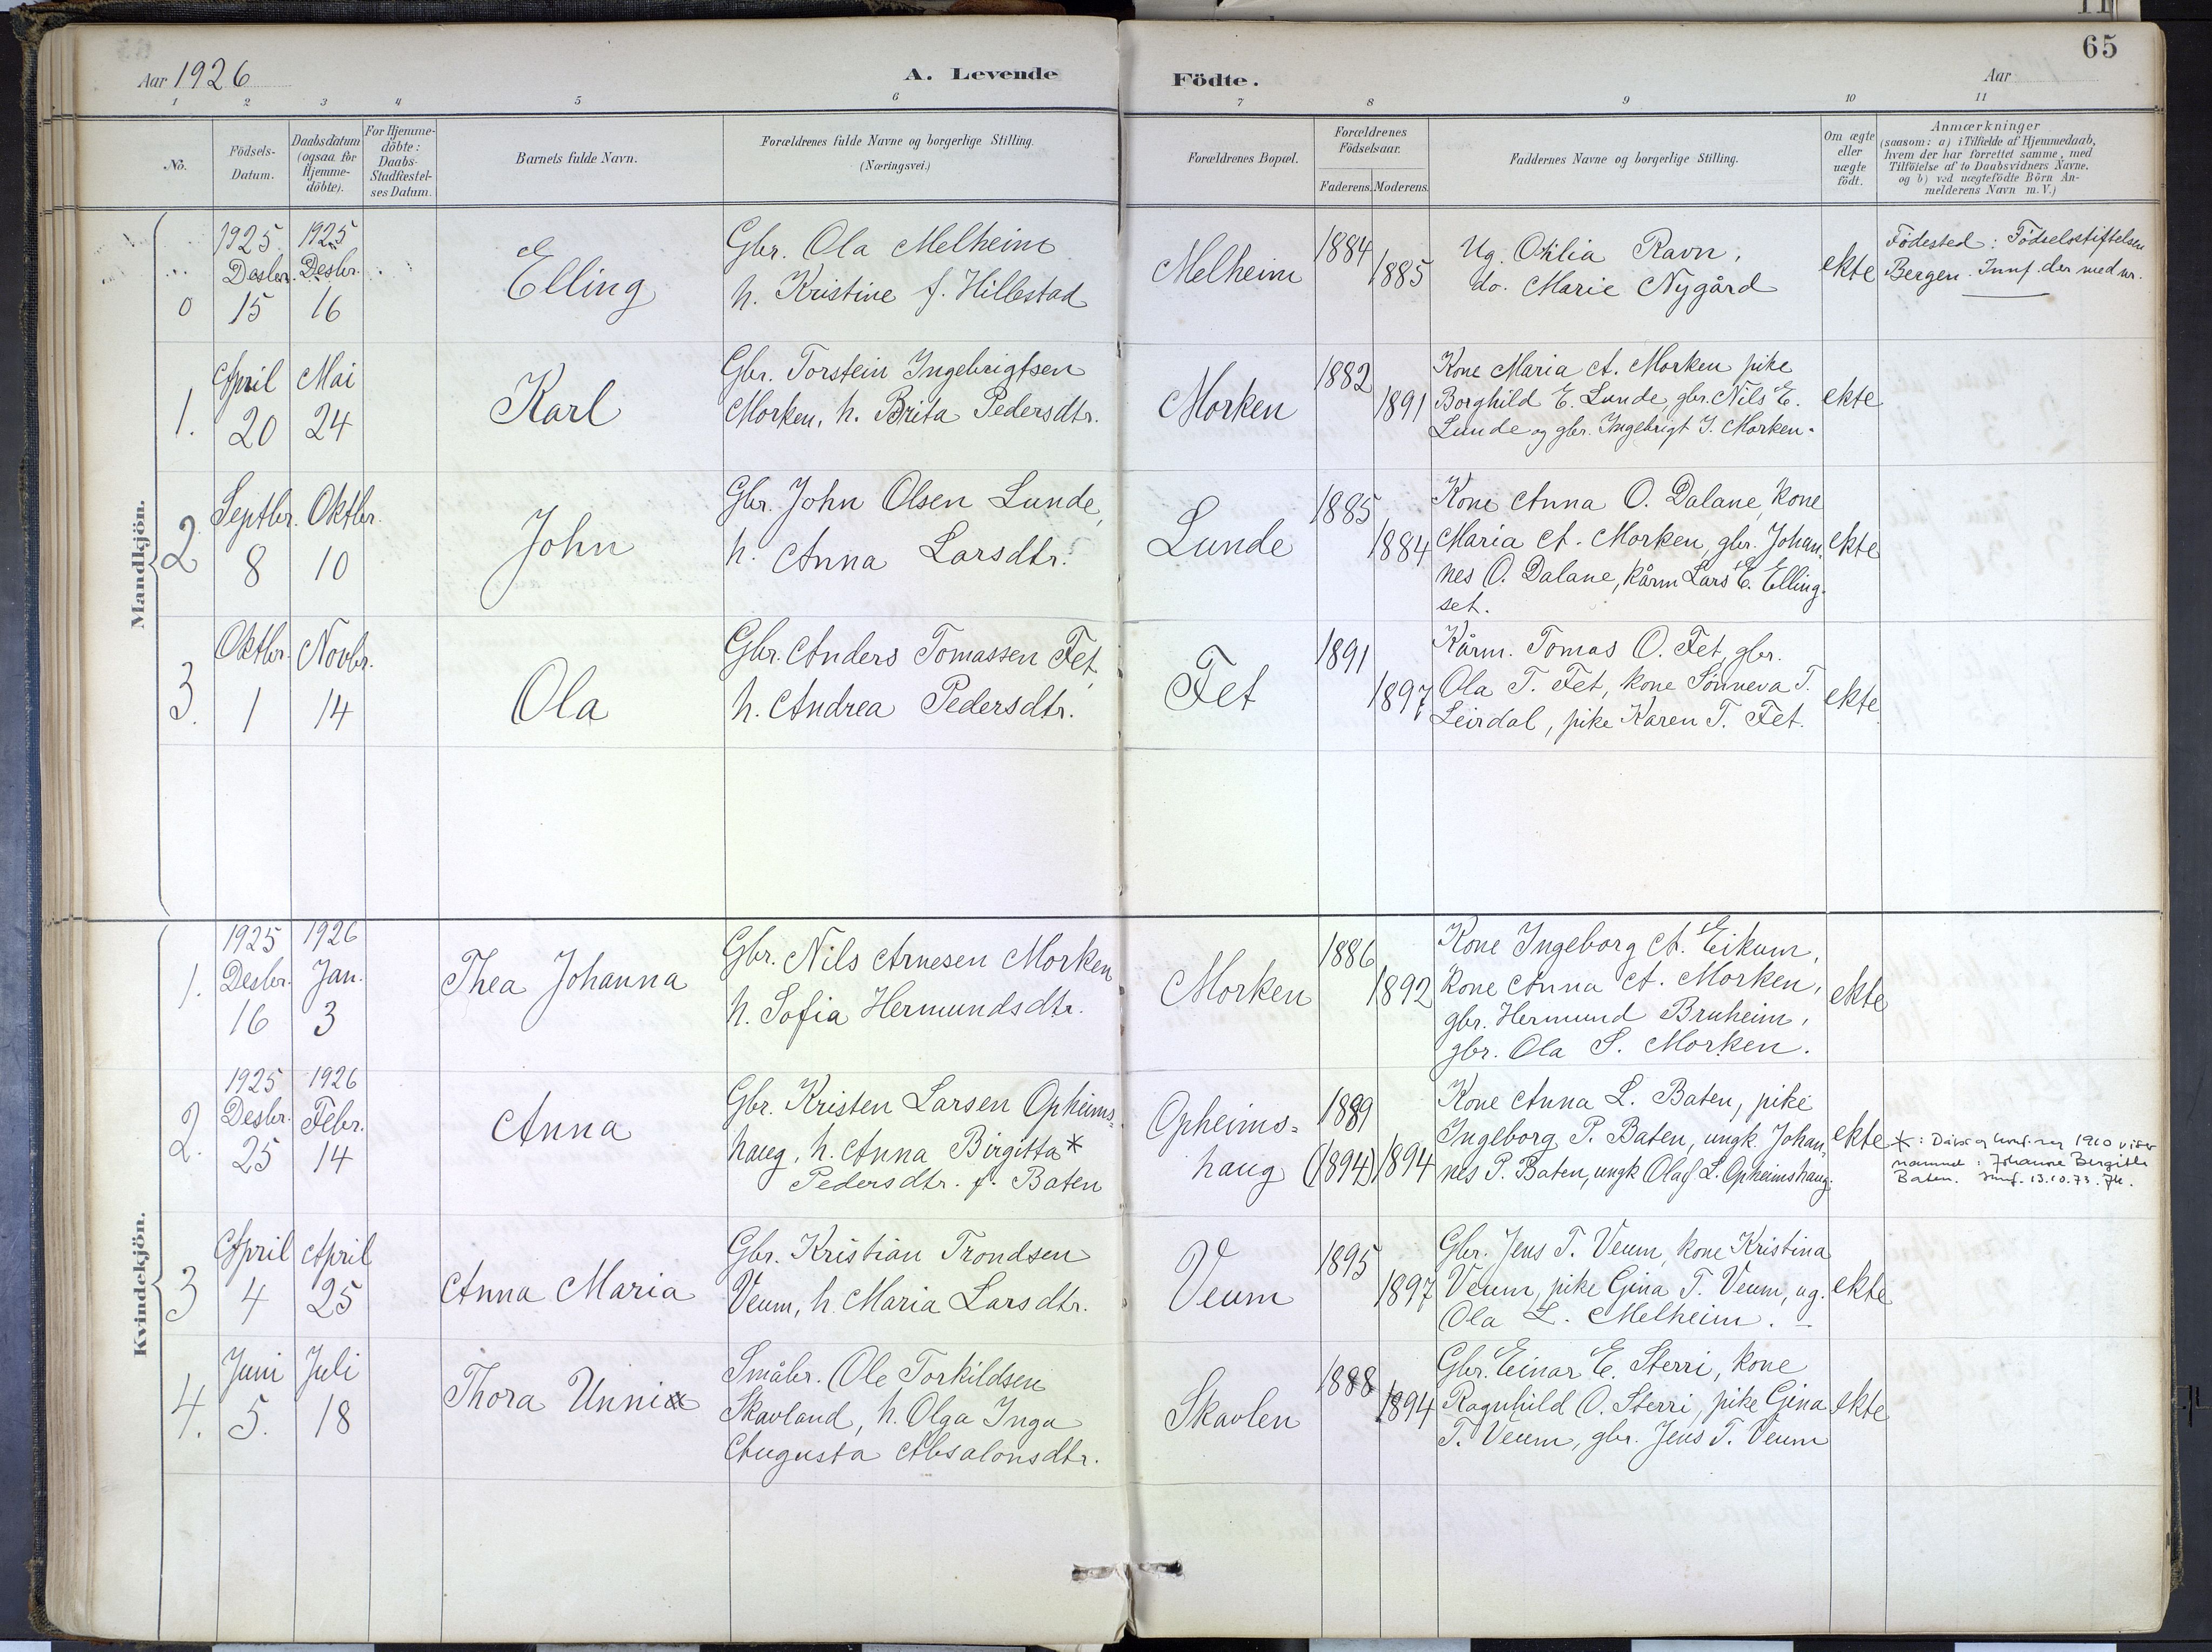 65
Aar 1926
A. Levende Födte.
Aar
1 2 3 4 5 6 7 8 9 10 11
No.
Födsels-
Datum.
Daabsdatum
(ogsaa for
Hjemme-
döbte).
For Hjemme-
döbte:
Daabs-
Stadfæstel-
ses Datum.
Barnets fulde Navn.
Forældrenes fulde Navne og borgerlige Stilling.
(Næringsvei.)
Forældrenes Bopæl.
Forældrenes
Födselsaar.
Faderens. Moderens.
Faddernes Navne og borgerlige Stilling.
Om ægte
eller
uægte
födt.
Anmærkninger
(saasom: a) i Tilfælde af Hjemmedaab,
hvem der har forrettet samme, med
Tilföielse af to Daabsvidners Navne.
og b) ved uægtefödte Börn An-
melderens Navn m. V.)
Mandkjön.
0
1925
Desbr.
15
1925
Desbr.
16
Elling
Gbr. Ola Melheim
h. Kristine f. Hillestad
Melheim
1884
1885
Ug. Otilia Ravn,
do. Marie Nygård
ekte
Födested: Födselsstiftelsen
Bergen. Innf. der med nr.
1.
April
20
Mai
24
Karl
Gbr. Torstein Ingebrigtsen
Morken, h. Brita Pedersdtr.
Morken
1882
1891
Kone Maria A. Morken pike
Borghild E. Lunde, gbr. Nils E.
Lunde og gbr. Ingebrigt I. Morken.
ekte
2.
Septbr.
8
Oktbr.
10
John
Gbr. John Olsen Lunde,
h. Anna Larsdtr.
Lunde
1885
1884
Kone Anna O. Dalane, kone
Maria A. Morken, gbr. Johan-
nes O. Dalane, kårm Lars E. Elling-
set.
ekte
3.
Oktbr.
1
Novbr.
14
Ola
Gbr. Anders Tomassen Fet,
h. Andrea Pedersdtr.
Fet
1891
1897
Kårm. Tomas O. Fet, gbr.
Ola T. Fet, kone Sönneva T.
Leirdal, pike Karen T. Fet.
ekte
Kvindekjön.
1.
1925
Desbr.
16
1926
Jan.
3
Thea Johanna
Gbr. Nils Arnesen Morken
h. Sofia Hermundsdtr.
Morken
1886
1892
Kone Ingeborg A. Eikum,
kone Anna A. Morken,
gbr. Hermund Bruheim,
gbr. Ola S. Morken.
ekte
2.
1925
Desbr.
25
1926
Febr.
14
Anna
Gbr. Kristen Larsen Opheims-
haug, h. Anna Birgitta *
Pedersdtr. f. Baten
Opheims-
haug
1889
(1894) 1894
Kone Anna L. Baten, pike
Ingeborg P. Baten, ungk. Johan-
nes P. Baten, ungk Olaf L. Opheimshaug.
ekte
*: Dåps og konf. reg 1910 viser
namned: Johanne Bergitte
Baten. Innf. 13.10.73.
3
April
4
April
25
Anna Maria
Gbr. Kristian Trondsen
Veum, h. Maria Larsdtr.
Veum
1895
1897
Gbr. Jens T. Veum, kone Kristina
Veum, pike Gina T. Veum, ug.
Ola L. Melheim.
ekte
4.
Juni
5.
Juli
18
Thora Unni
Småbr. Ole Torkildsen
Skavland, h. Olga Inga
Augusta Absalonsdtr.
Skavlen
1888
1894
Gbr. Einar E. Sterri, kone
Ragnhild O. Sterri, pike Gina
T. Veum, gbr. Jens T. Veum
ekte